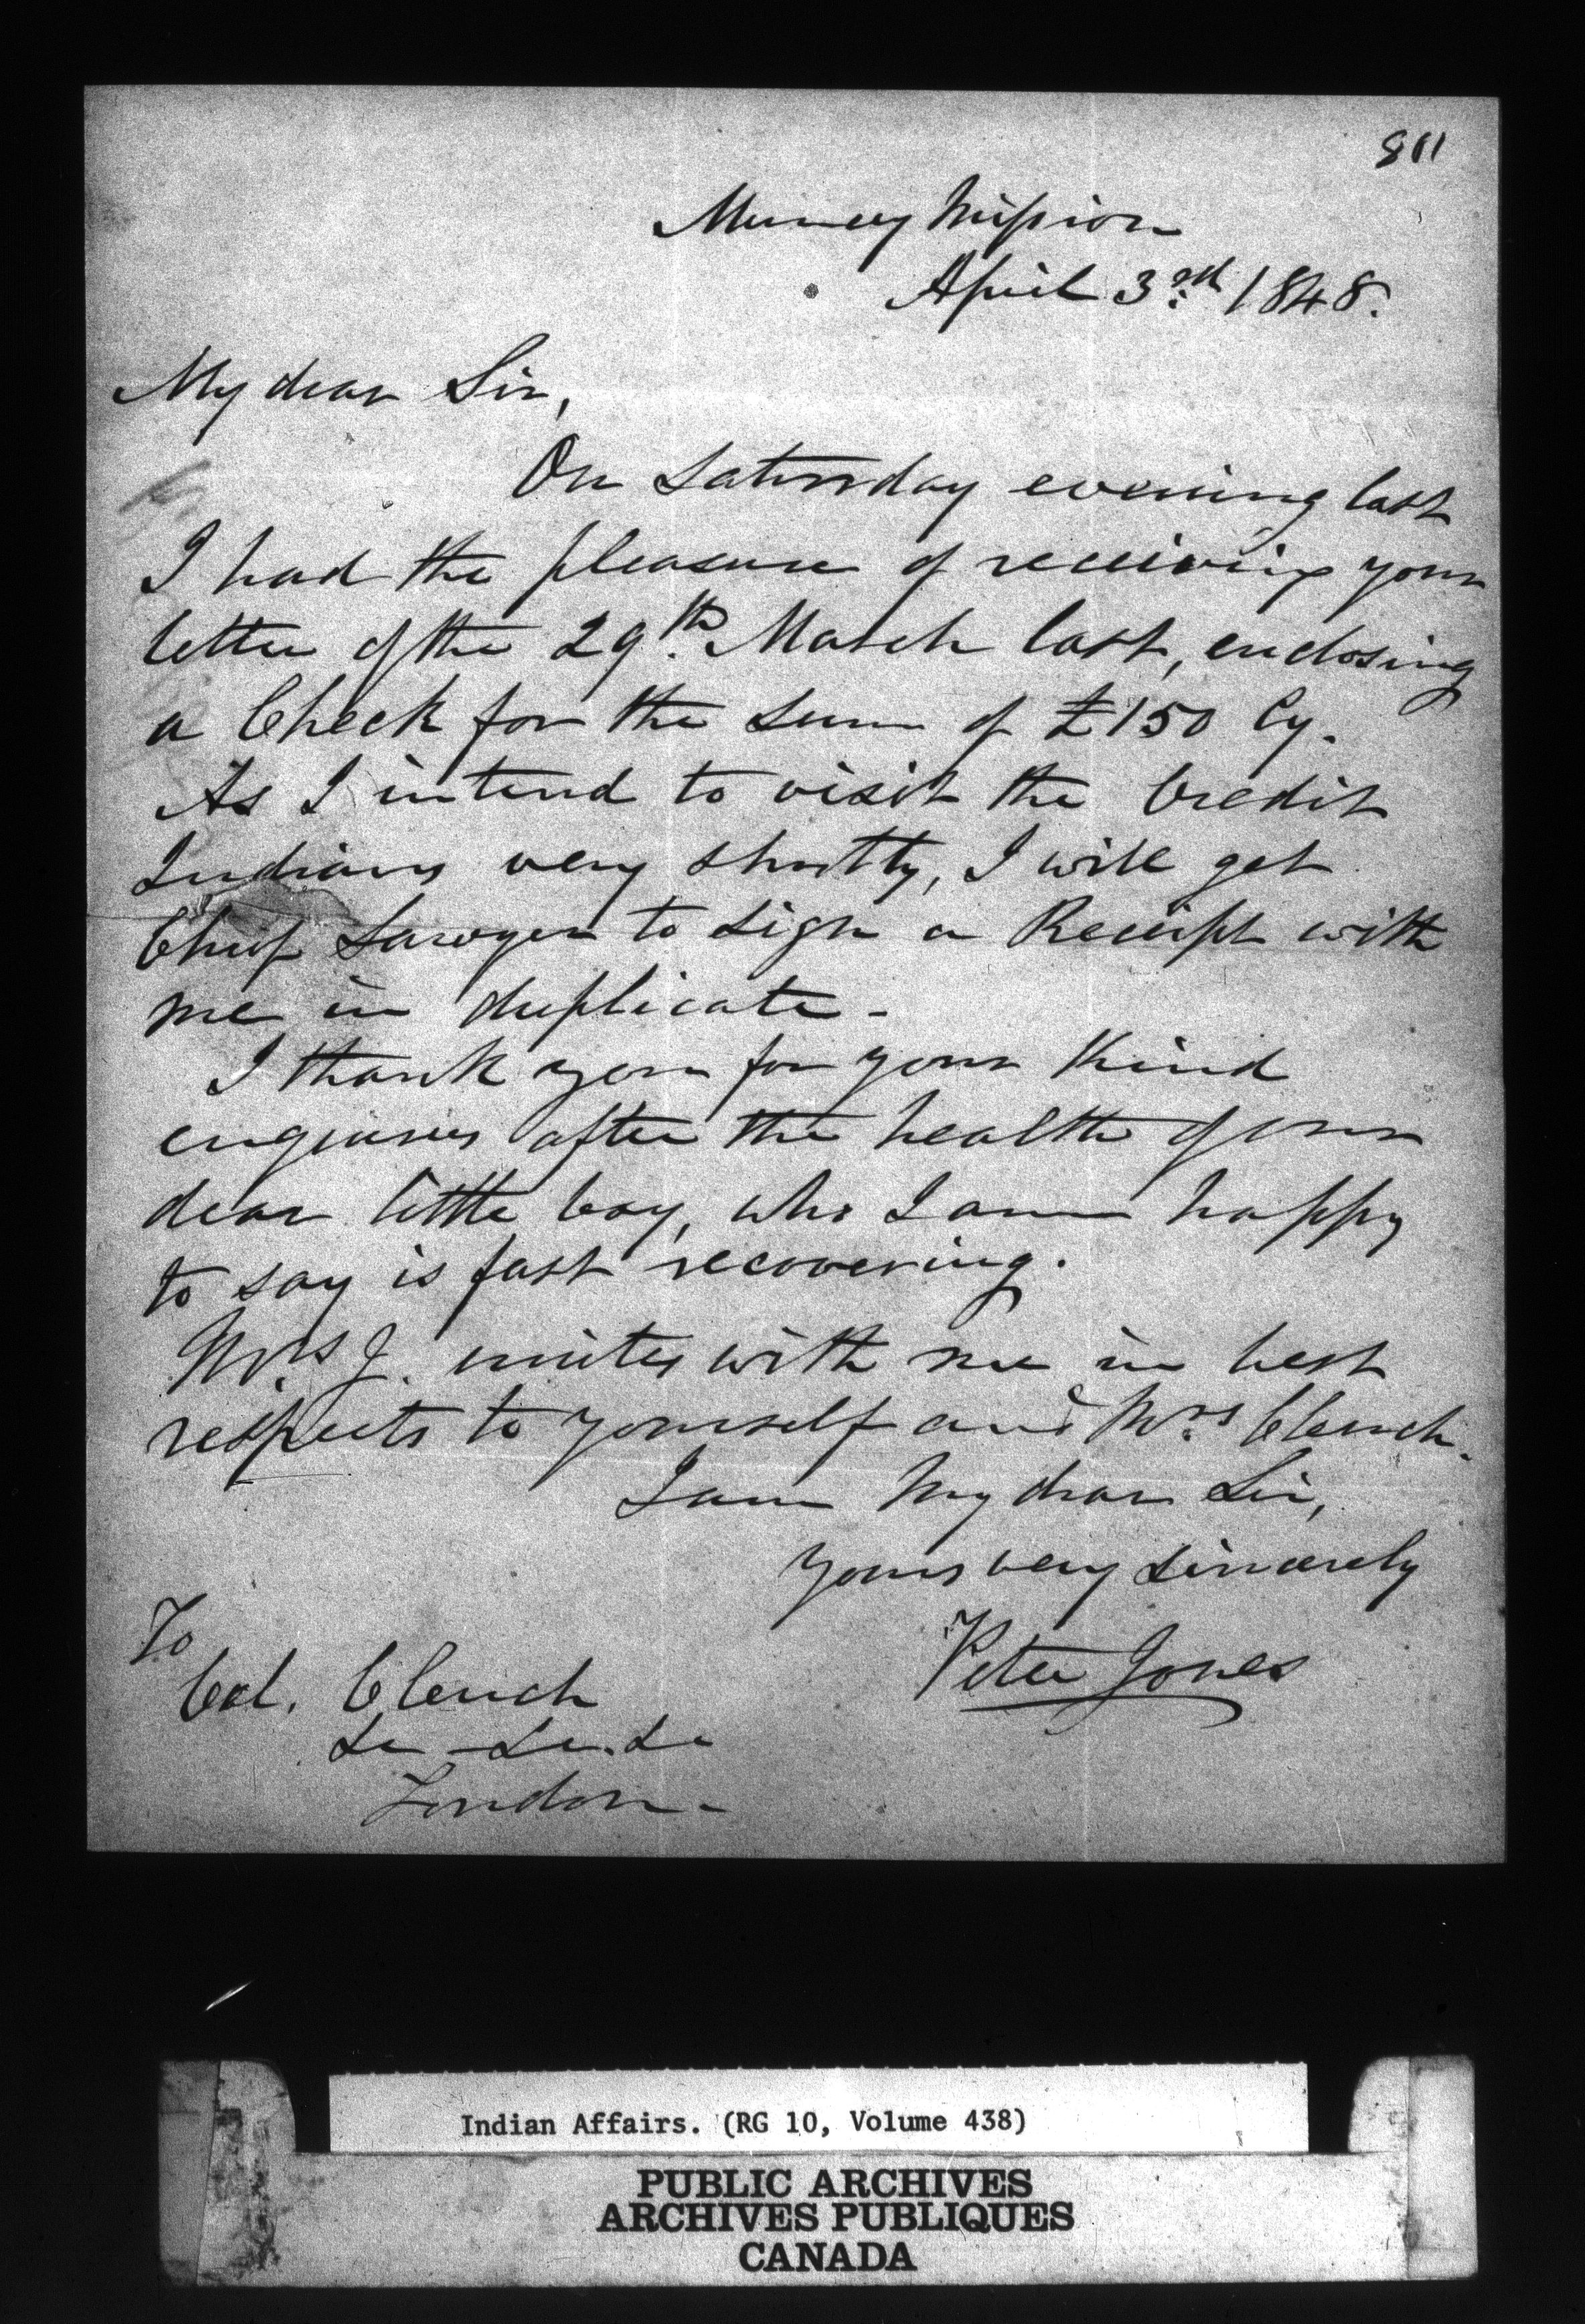 811
Muncey Mission
April 3rd. 1848.
My dear Sir,
On Saturday evening last
I had the pleasure of receiving your
letter of the 29th. March last, enclosing
a Check for the sum of £150 Cy.
As I intend to visit the Credit
Indians very shortly, I will get
Chief Sawyer to sign a Receipt with
me in duplicate -
I thank you for your kind
enquiries after the health of our
dear little boy, who I am happy
to say is fast recovering.
Mrs. J. unites with me in best
respects to yourself and Mrs. Clench.
I am My dear Sir,
Yours very sincerely
Peter Jones
To
Col. Clench
London -
Indian Affairs. (RG 10, Volume 438)
PUBLIC ARCHIVES
ARCHIVES PUBLIQUES
CANADA